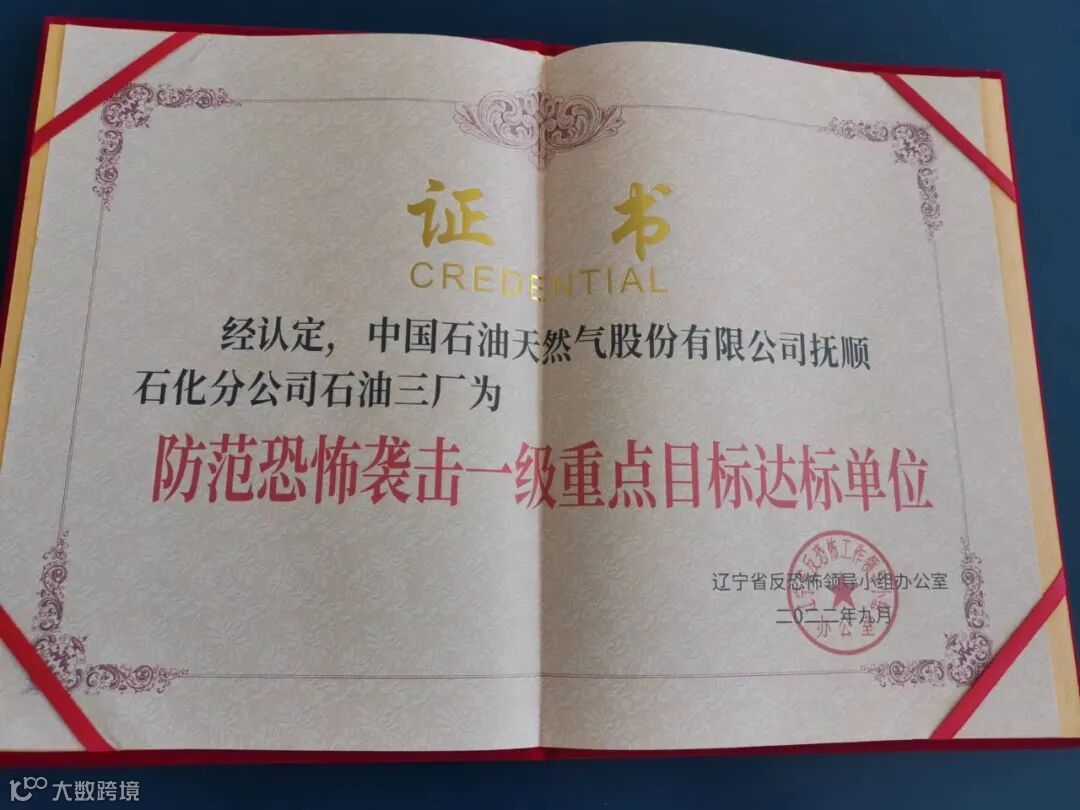 证 书
CREDENTIAL
经认定，中国石油天然气股份有限公司抚顺
石化分公司石油三厂为
防范恐怖袭击一级重点目标达标单位
辽宁省反恐怖领导小组办公室
二〇二二年九月
办公室
大数跨境